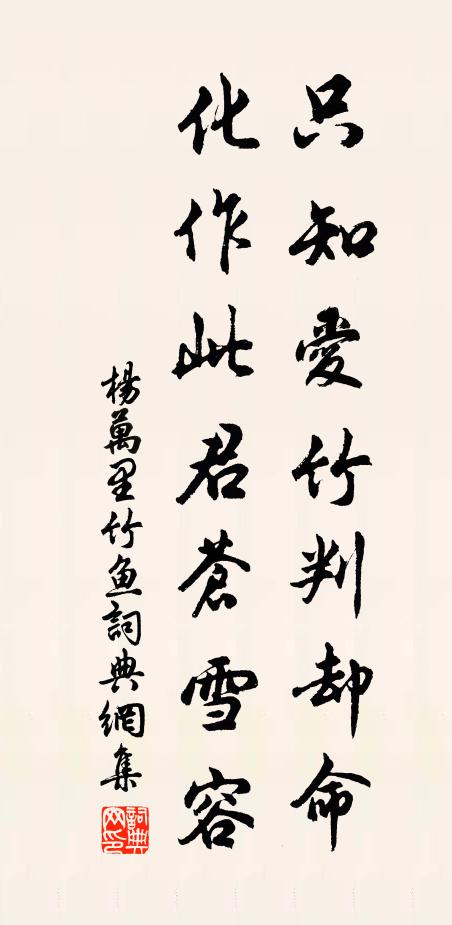 只知愛竹判却命
化作此君蒼雪容
楊萬里竹魚詞典網集
詞典網印